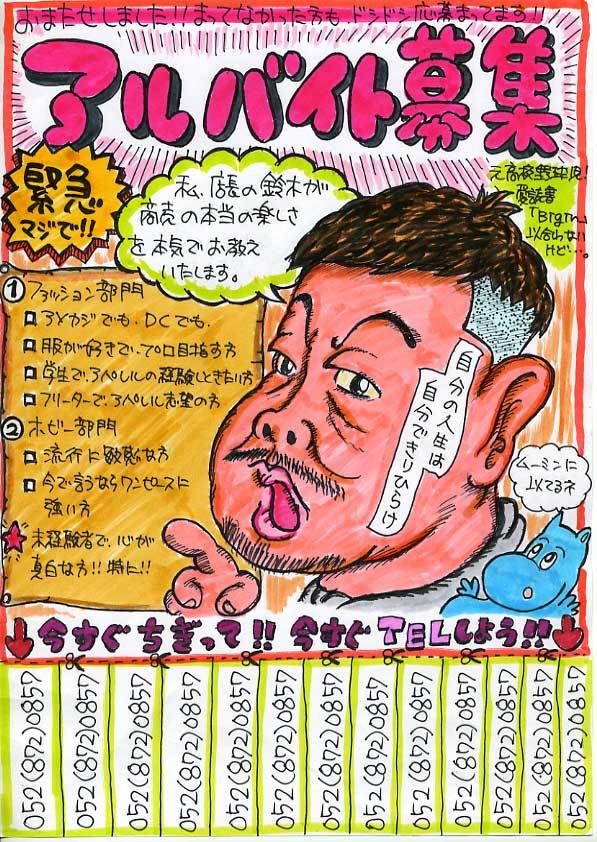 おまたせしました!!まってなかった方も、ドシドシ応募まってます!!
アルバイト募集
緊急
マジで!!
私、店長の鈴木が
商売の本当の楽しさ
を本気でお教え
いたします。
元高校野球児!
愛読書
「Brgm」
以合わない
けど…。
① ファッション部門
アメカジでも、DCでも、
服が好きで、プロ目指す方
学生で、アパレルの経験しときたい方
フリーターで、アパレル志望の方
② ホビー部門
流行に敏感な方
今で言うならワンピースに
強い方
★未経験者で、心が
真白な方!!特に!!
自分の人生は
自分できりひらけ
ムーミンに
似てるネ
↓今すぐちぎって!!今すぐTELしよう!!↓
052(872)0857
052(872)0857
052(872)0857
052(872)0857
052(872)0857
052(872)0857
052(872)0857
052(872)0857
052(872)0857
052(872)0857
052(872)0857
052(872)0857